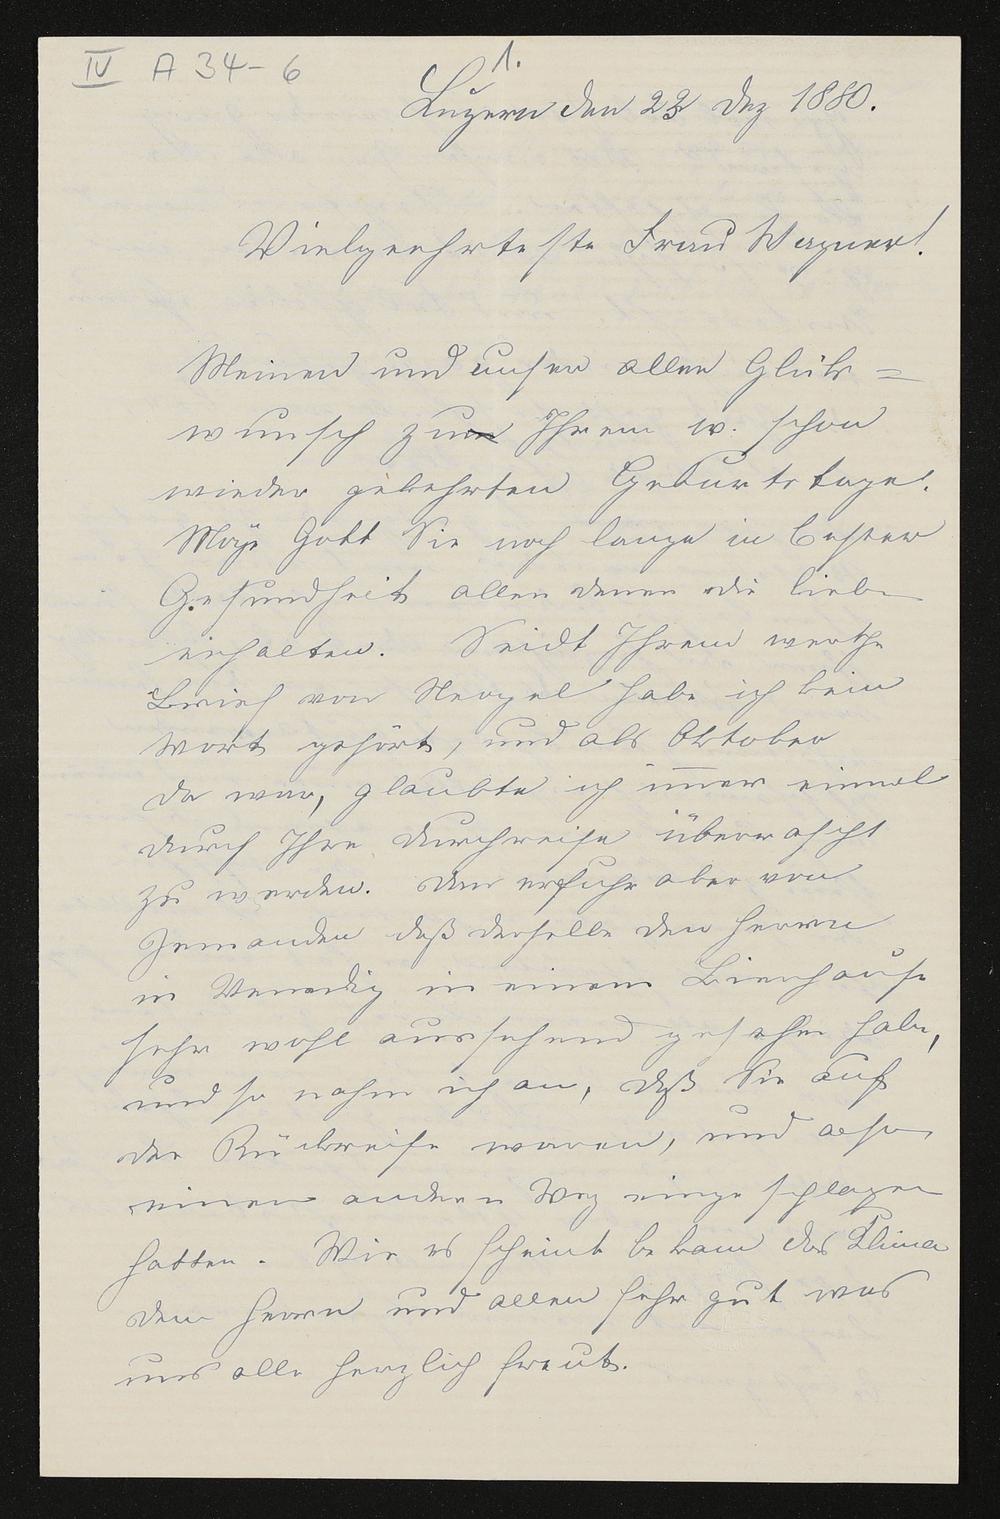 IV A 34-6
1.
Luzern den 23 Dez 1880.
Vielgeehrteste Frau Wagner!
Meinen und unser aller Glück=
wunsch zum Ihrem w. schon
wieder gekehrten Geburtstage!
Möge Gott Sie noch lange in bester
Gesundheit allen denen die lieb
erhalten. Seidt Ihrem werthe
Brief von Neapel habe ich kein
Wort gehört, und als Oktober
da war, glaubte ich immer einmal
durch Ihre Durchreise überrascht
zu werden. Dan erfuhr aber von
Jemanden daß derselbe den Herrn
in Venedig in einem Bierhause
sehr wohl aussehend gesehen habe,
und so nahm ich an, daß Sie auf
der Rückreise waren, und also
einen andern Weg eingeschlagen
hatten. Wie es scheint bekam das Klima
dem Herrn und allen sehr gut was
uns alle herzlich freut.